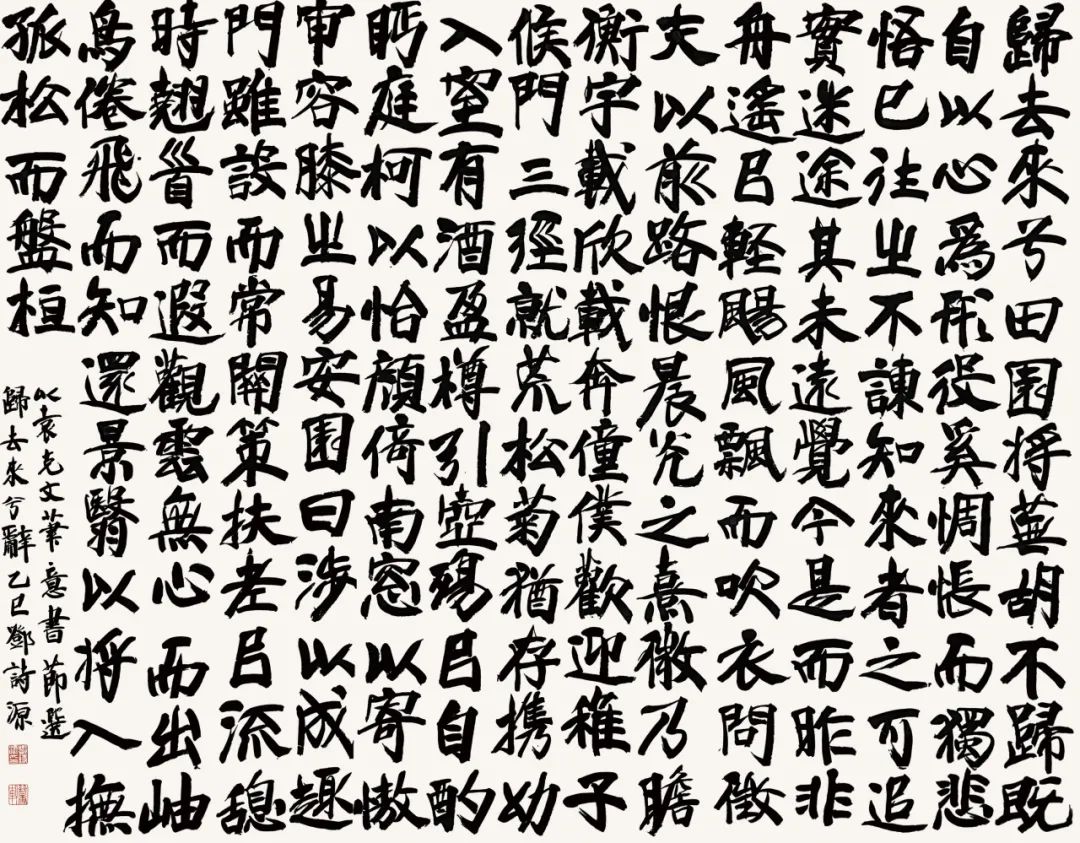 歸去來兮田園将蕪胡不歸既
自以心爲形役奚惆悵而獨悲
悟已往之不諫知來者之可追
實迷途其未遠覺今是而昨非
舟遥㠯軽颺風飄而吹衣問徵
夫以前路恨晨光之熹微乃瞻
衡宇載欣載奔僮僕歡迎稚子
候門三徑就荒松菊猶存携幼
入室有酒盈樽引壺殤㠯自酌
眄庭柯以怡顔倚南窓以寄慠
审容膝之易安園日涉以成趣
門雖設而常關策扶老㠯流憩
時翹首而遐觀雲無心而出岫
鳥倦飛而知還景翳以将入撫
孤松而盤桓
以袁克文筆意書節選
歸去來兮辭乙巳鄧詩源